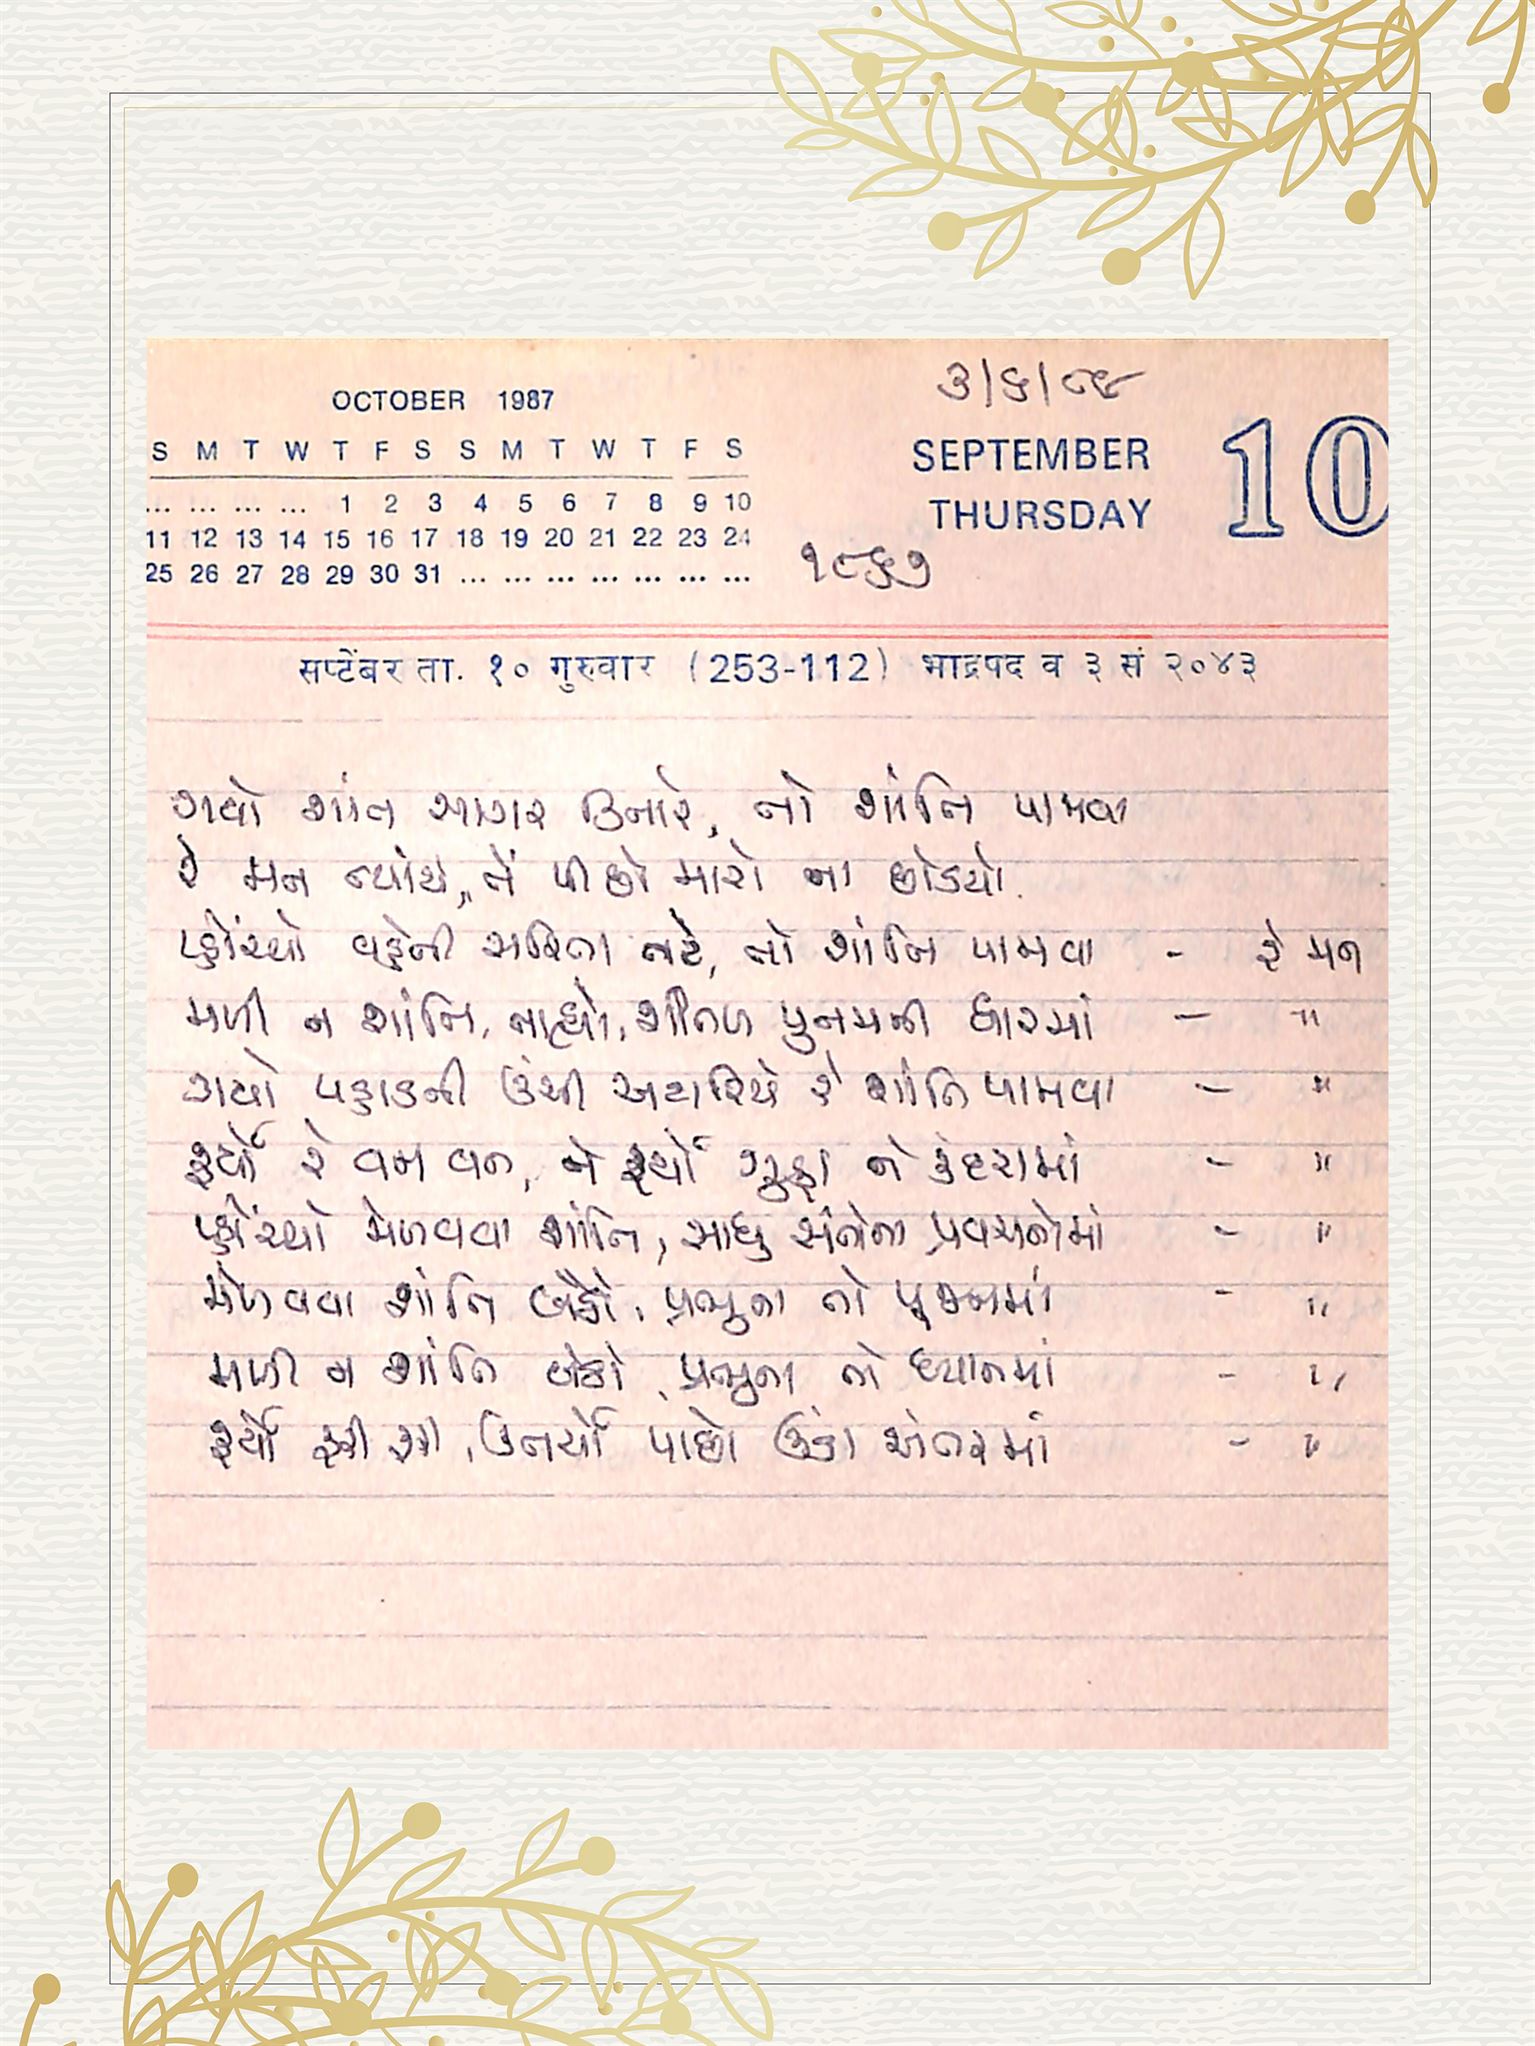 ૩/૬/૮૯
OCTOBER 1987
S M T W T F S S M T W T F S
... ... ... ... 1 2 3 4 5 6 7 8 9 10
11 12 13 14 15 16 17 18 19 20 21 22 23 24
25 26 27 28 29 30 31 ... ... ... ... ... ... ...
SEPTEMBER 10
THURSDAY
૧૮૬૭
सप्टेंबर ता. १० गुरुवार (253-112) भाद्रपद व ३ सं २०४३
ગયો શાંત સાગર કિનારે, તો શાંતિ પામવા
રે મન ત્યાંય, તેં પીછો મારો ના છોડયો.
પ્હોંચ્યો વહેતી સરિતા તટે, તો શાંતિ પામવા - રે મન
મળી ન શાંતિ, નાહ્યો, શીતળ પુનમની ધારમાં - "
ગયો પહાડની ઉંચી અટારિયે રે શાંતિ પામવા - "
ફર્યો રે વન વન, ને ફર્યો ગુફા ને કંદરામાં - "
પ્હોંચ્યો મેળવવા શાંતિ, સાધુ સંતોના પ્રવચનોમાં - "
મેળવવા શાંતિ બેઠો, પ્રભુના તો પૂજનમાં - "
મળી ન શાંતિ બેઠો, પ્રભુના તો ધ્યાનમાં - "
ફર્યો ફરી ફરી, ઉતર્યો પાછો ઉંડા અંતરમાં - "